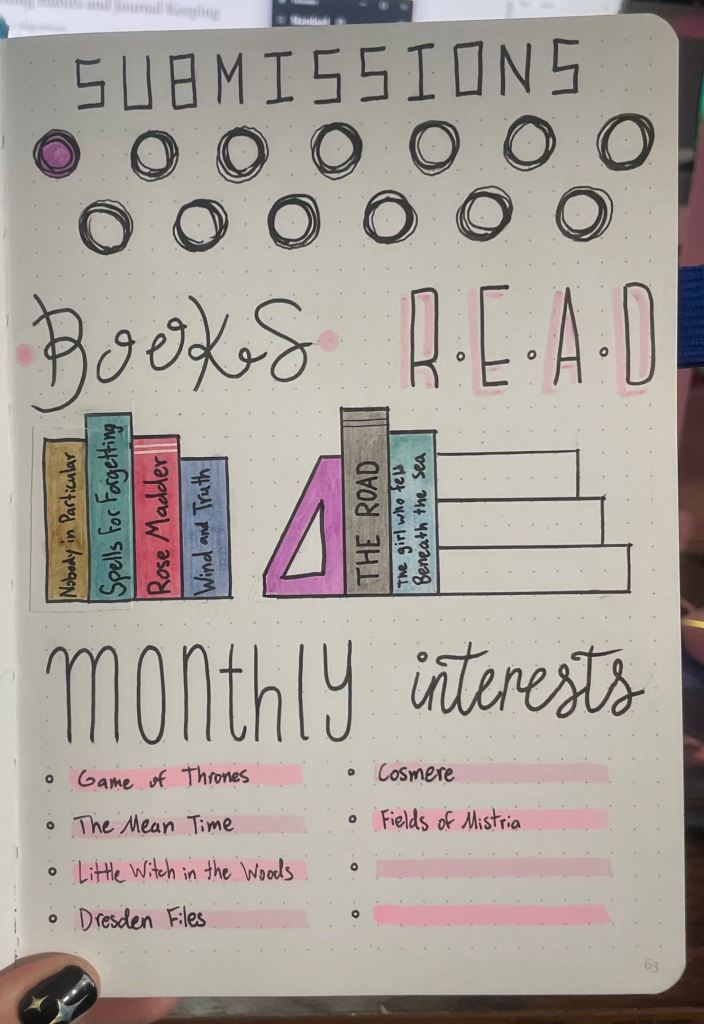 ing Habits and Journal Keeping
SUBMISSIONS
Books R.E.A.D
Nobody in Particular
Spells for Forgetting
Rose Madder
Wind and Truth
THE ROAD
The girl who fell
Beneath the Sea
monthly interests
Game of Thrones
The Mean Time
Little Witch in the Woods
Dresden Files
Cosmere
Fields of Mistria
63